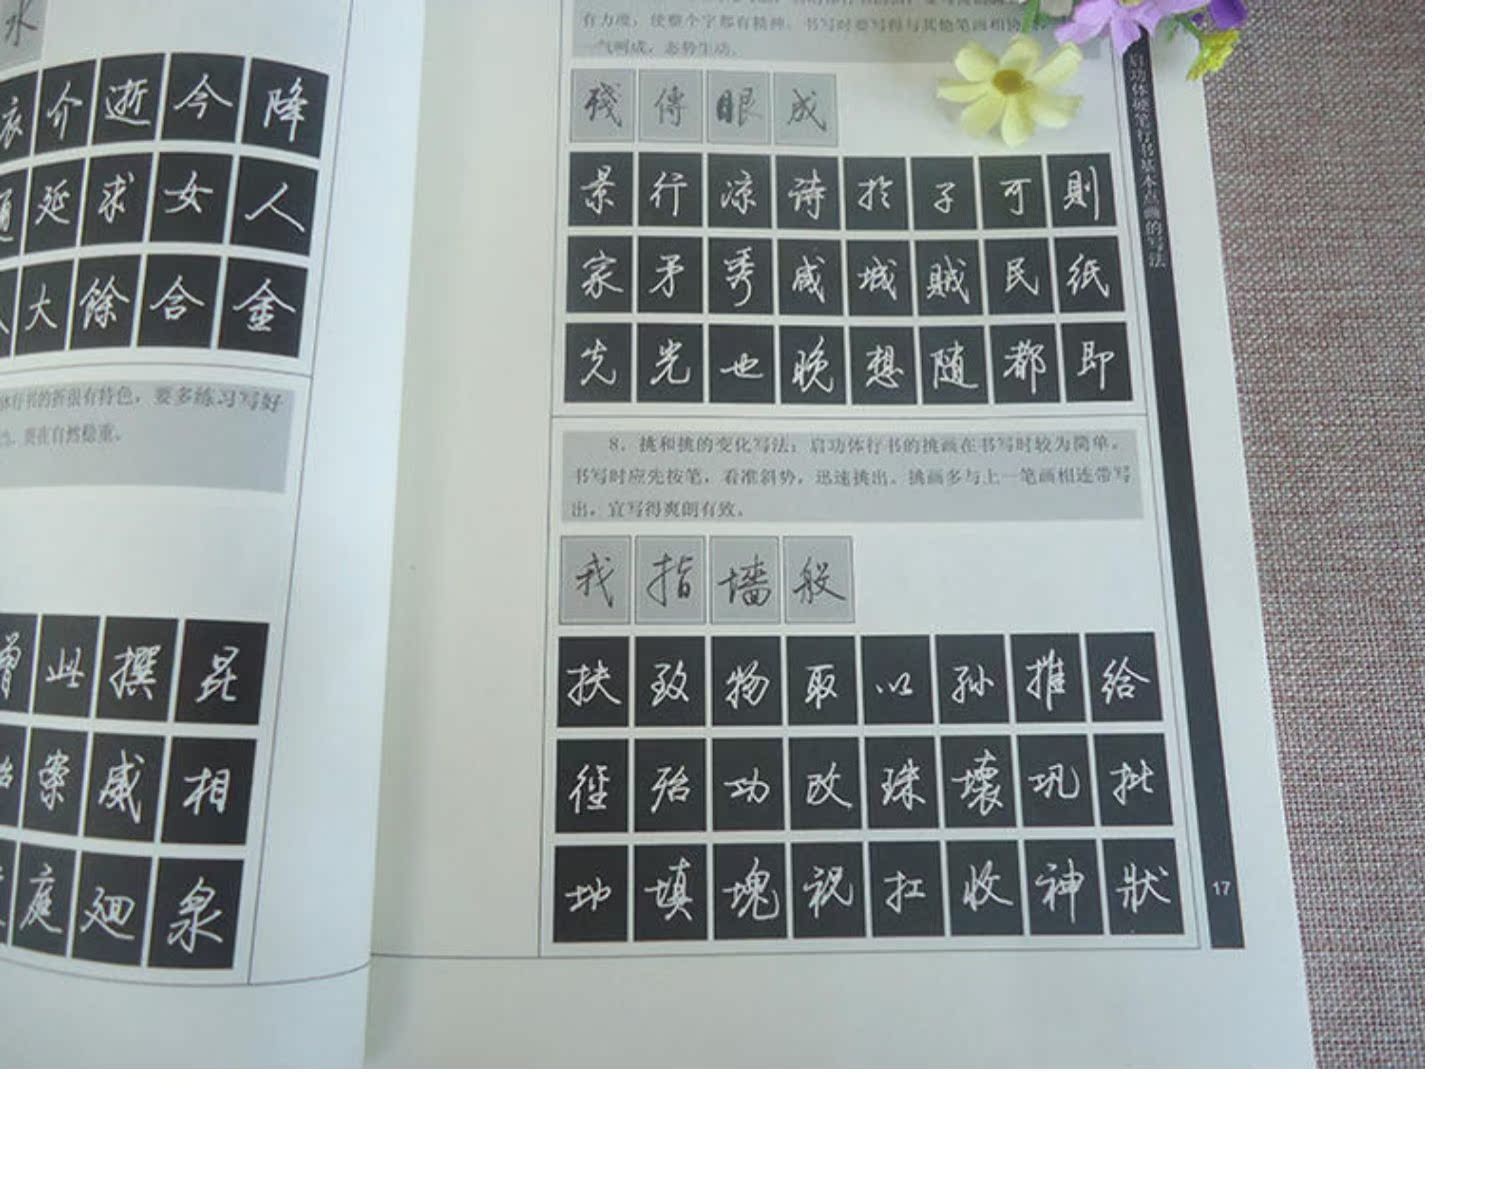 水
衣 介 逝 今 降
通 延 求 女 人
大 餘 含 金
体行书的折很有特色，要多练习写好
要在自然稳重。
曾 此 撰 昆
案 威 相
庭 廻 泉
有力度，使整个字都有精神。书写时要写得与其他笔画相协
一气呵成，态势生动。
残 傳 眼 成
景 行 凉 诗 於 子 可 則
家 矛 秀 咸 城 賊 民 纸
先 光 也 晚 想 随 都 即
8．挑和挑的变化写法：启功体行书的挑画在书写时较为简单。
书写时应先按笔，看准斜势，迅速挑出。挑画多与上一笔画相连带写
出，宜写得爽朗有致。
我 指 墙 般
扶 致 物 取 以 孙 推 给
徑 殆 功 改 珠 壞 巩 批
地 填 塊 祝 扛 收 神 狀
启功体硬笔行书基本点画的写法
17